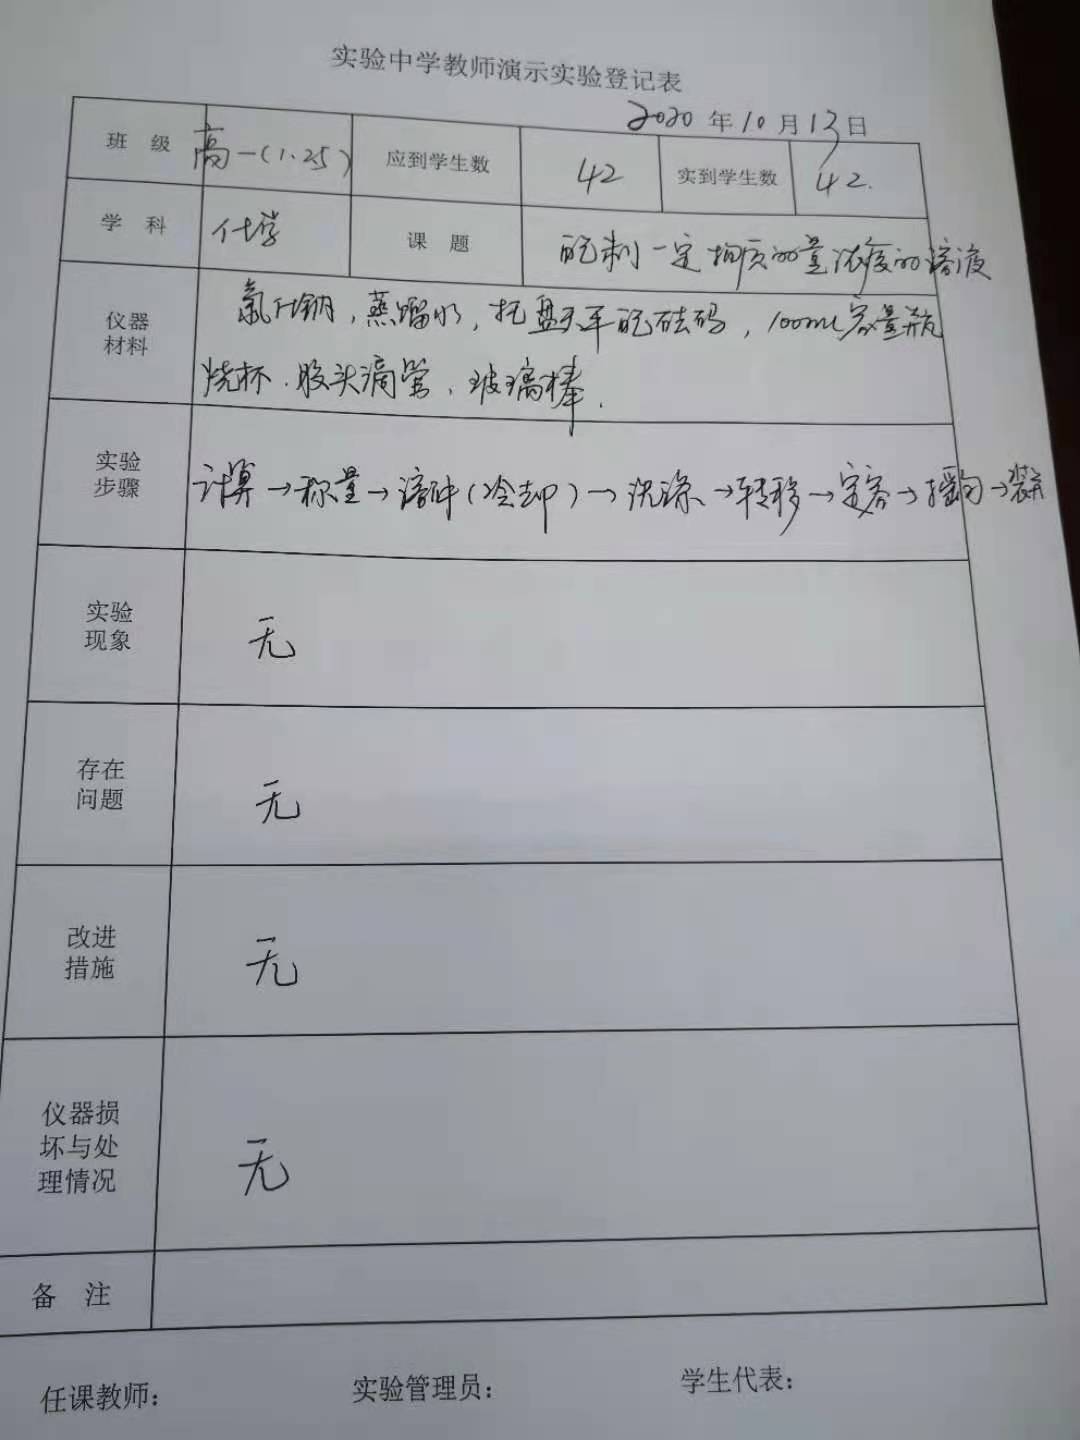 实验中学教师演示实验登记表
2020年10月13日
班级 高一(1.25) 应到学生数 42 实到学生数 42.
学科 化学 课题 配制一定物质的量浓度的溶液
仪器材料 氯化钠,蒸馏水,托盘天平配砝码,100mL容量瓶
烧杯.胶头滴管.玻璃棒.
实验步骤 计算→称量→溶解(冷却)→洗涤→转移→定容→摇匀→装瓶
实验现象 无
存在问题 无
改进措施 无
仪器损坏与处理情况 无
备注
任课教师: 实验管理员: 学生代表: